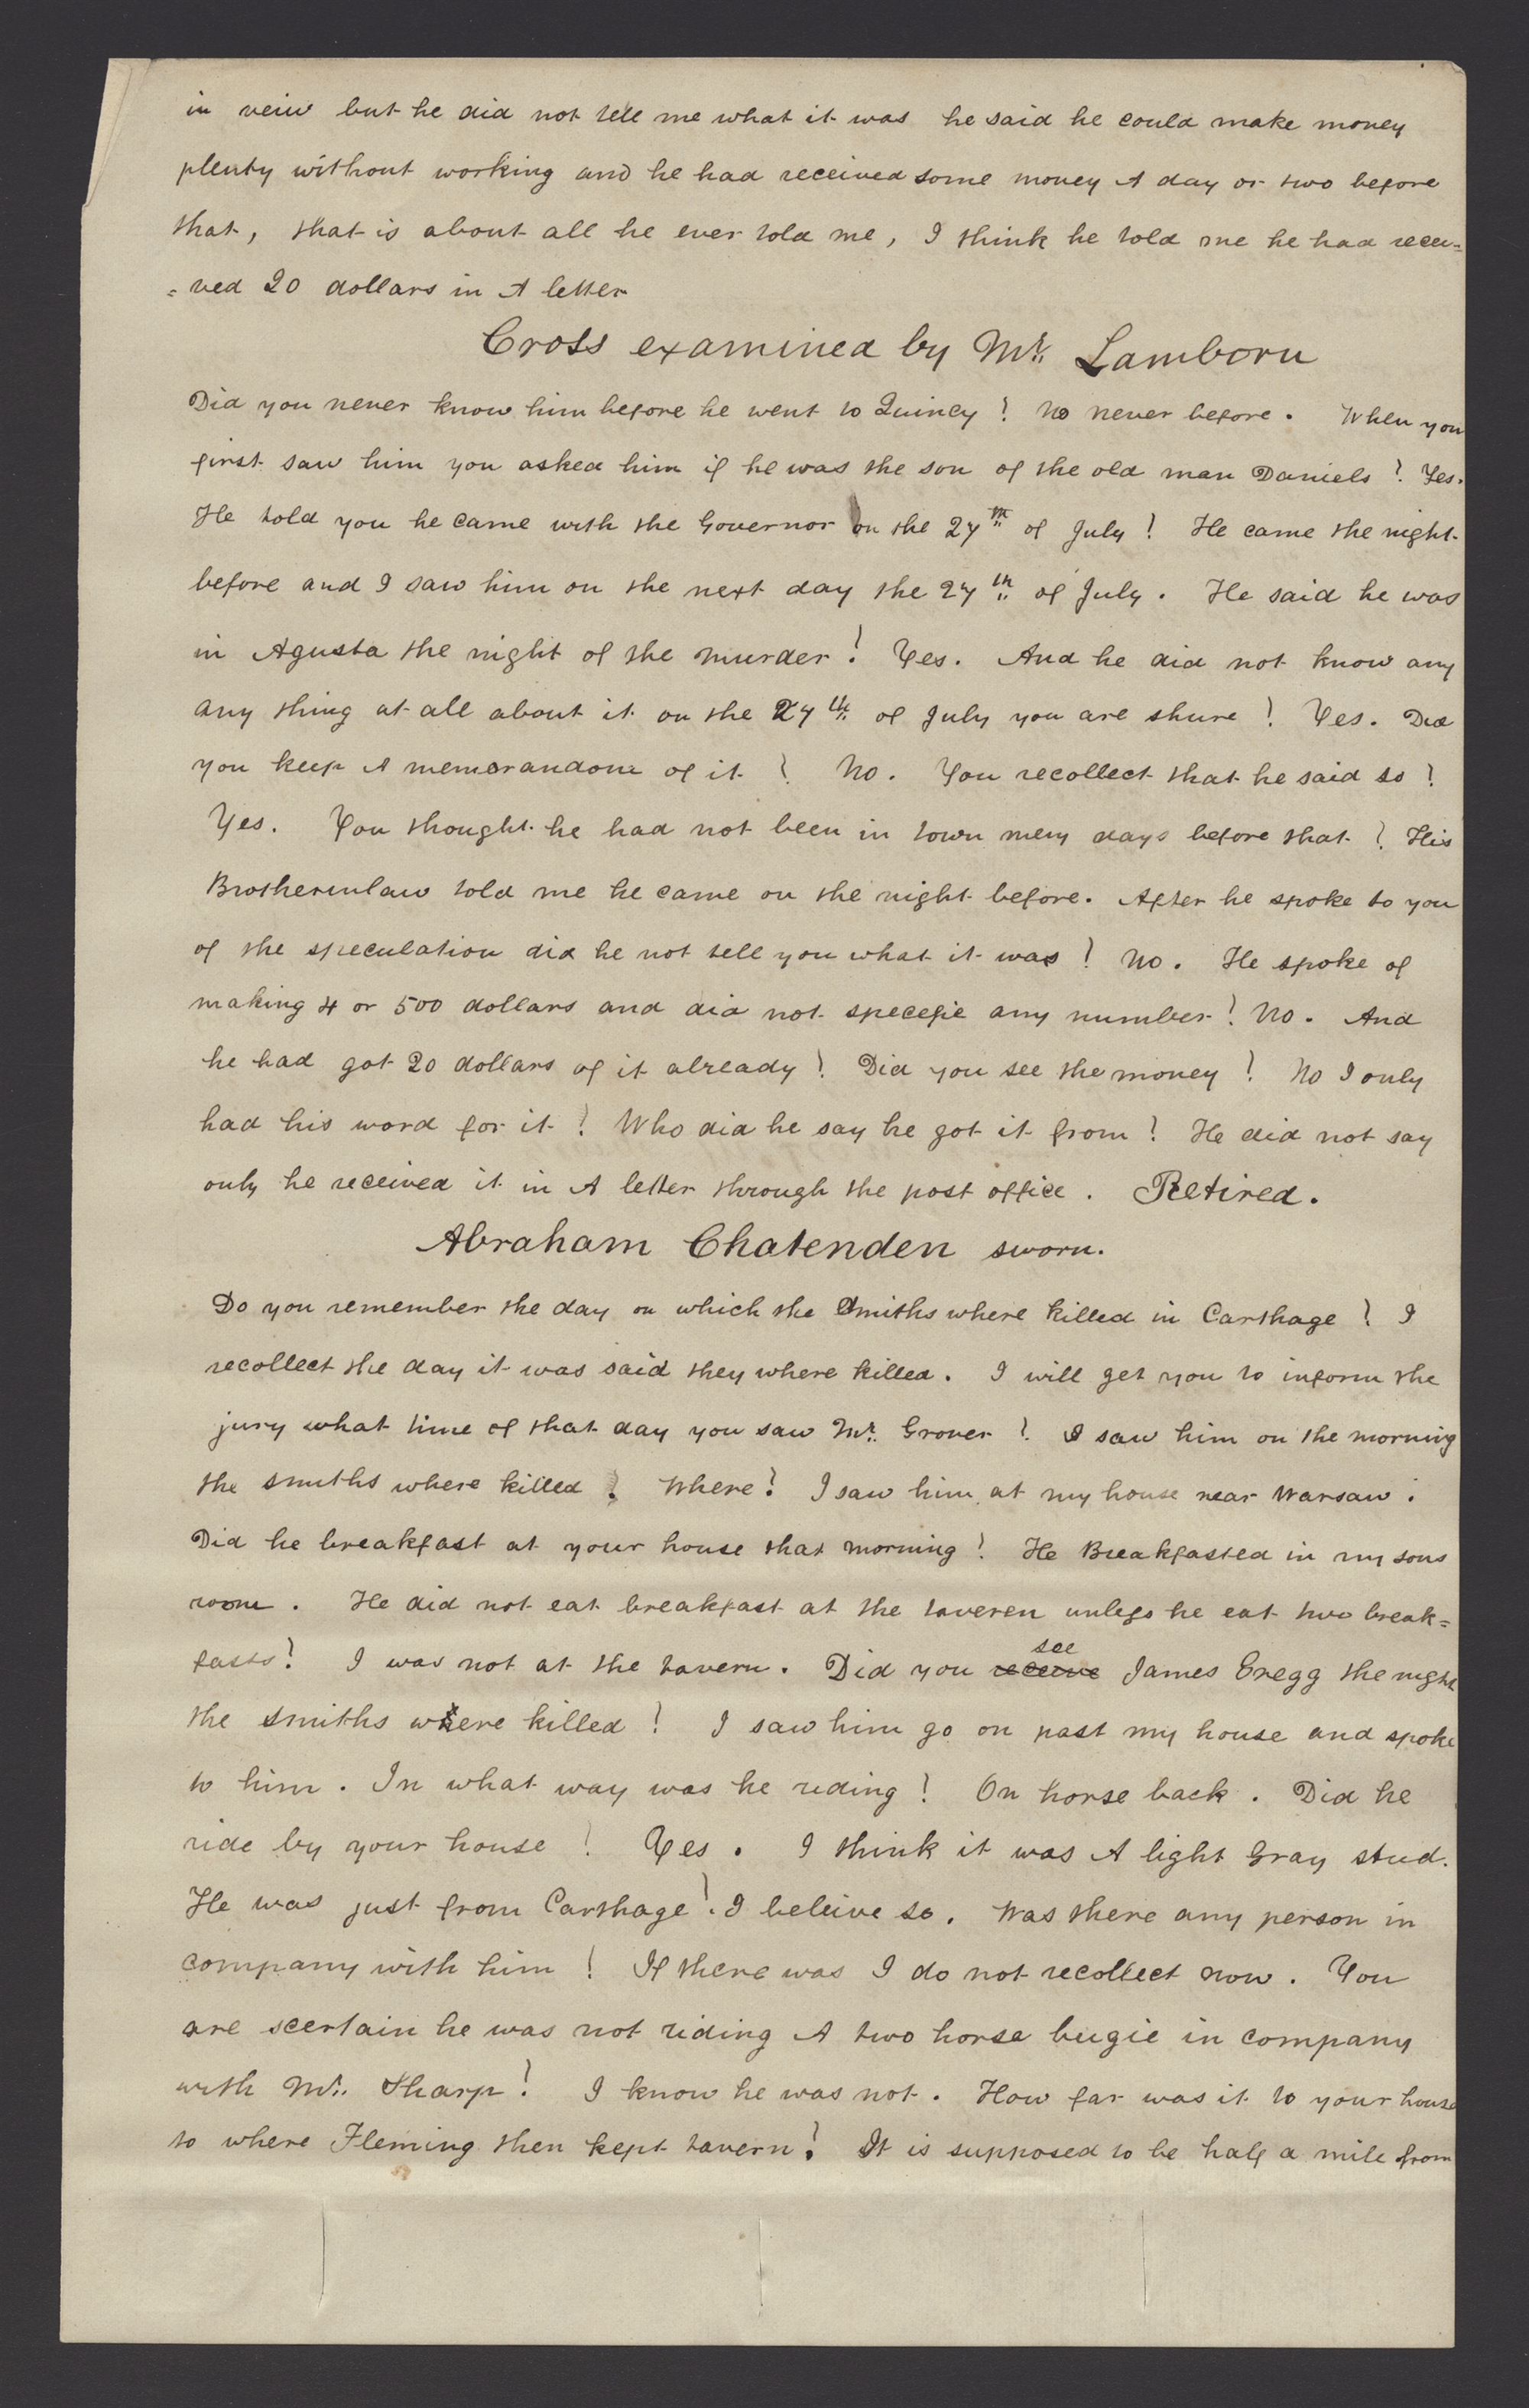 in veiw but he did not tell me what it was he said he could make money
plenty without working and he had received some money A day or two before
that, that is about all he ever told me, I think he told me he had recei=
=ved 20 dollars in A letter
Cross examined by Mr. Lamborn
Did you never know him before he went to Quincy? No never before. When you
first saw him you asked him if he was the son of the old man Daniels? Yes.
He told you he came with the Governor on the 27th of July? He came the night
before and I saw him on the next day the 27th of July. He said he was
in Agusta the night of the murder? Yes. And he did not know any
any thing at all about it on the 27th of July you are shure? Yes. Did
you keep A memorandom of it? No. You recollect that he said so?
Yes. You thought he had not been in town meny days before that? His
Brotherinlaw told me he came on the night before. After he spoke to you
of the speculation did he not tell you what it was? No. He spoke of
making 4 or 500 dollars and did not specefie any number? No. And
he had got 20 dollars of it already? Did you see the money? No I only
had his word for it? Who did he say he got it from? He did not say
only he received it in A letter through the post office. Retired.
Abraham Chatenden sworn.
Do you remember the day on which the Smiths where killed in Carthage? I
recollect the day it was said they where killed. I will get you to inform the
jury what time of that day you saw Mr. Grover? I saw him on the morning
the smiths where killed? Where? I saw him at my house near Warsaw.
Did he breakfast at your house that morning? He Breakfasted in my sons
room. He did not eat breakfast at the taveren unless he eat two break=
fasts? I was not at the tavern. Did you receive see James Gregg the night
the smiths where killed? I saw him go on past my house and spoke
to him. In what way was he riding? On horse back. Did he
ride by your house? Yes. I think it was A light Gray stud.
He was just from Carthage? I beleive so. Was there any person in
company with him? If there was I do not recollect now. You
are scertain he was not riding A two horse bugie in company
with Mr. Sharp? I know he was not. How far was it to your house
to where Fleming then kept tavern? It is supposed to be half a mile from